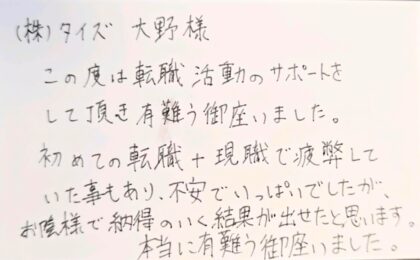 (株)タイズ 大野様
この度は転職活動のサポートを
して頂き有難う御座いました。
初めての転職+現職で疲弊して
いた事もあり、不安でいっぱいでしたが、
お陰様で納得のいく結果が出せたと思います。
本当に有難う御座いました。